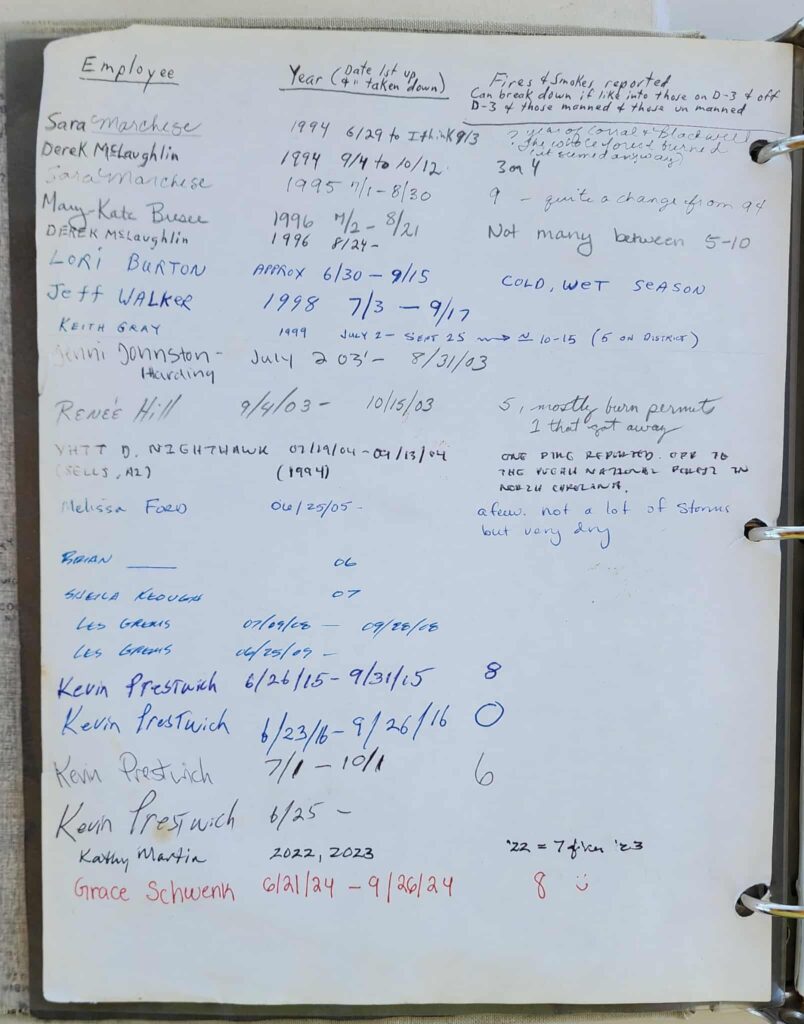 Employee Year (Date 1st up, & " taken down) Fires & Smokes reported
Can break down if like into those on D-3 & off
D-3 & those manned & those un manned
Sara Marchese 1994 6/29 to I think 9/3 ? year of Corral & Blackwell
The whole forest burned
(it seemed anyway)
Derek McLaughlin 1994 9/4 to 10/12 3 or 4
Sara Marchese 1995 7/1 - 8/30 9 - quite a change from 94
Mary-Kate Busee 1996 7/2 - 8/21
DEREK McLaughlin 1996 8/24 - Not many between 5-10
LORI BURTON APPROX 6/30 - 9/15 COLD, WET SEASON
Jeff WALKER 1998 7/3 - 9/17
KEITH GRAY 1999 JULY 2 - SEPT 25 ≈ 10-15 (5 ON DISTRICT)
Jenni Johnston- July 2 03' - 8/31/03
Harding
RENEÉ Hill 9/4/03 - 10/15/03 5, mostly burn permits
1 that got away
D. NIGHTHAWK 07/19/04 - 09/13/04 ONE REPORTED. OFF TO
(SELLS, AZ) (1994) THE NATIONAL FOREST IN
NORTH CAROLINA.
Melissa Ford 06/25/05 - a few. not a lot of storms
but very dry
BRIAN ____ 06
SHEILA KEOUGH 07
LES 07/09/08 - 09/28/08
LES 06/25/09 -
Kevin Prestwich 6/26/15 - 9/31/15 8
Kevin Prestwich 6/23/16 - 9/26/16 0
Kevin Prestwich 7/1 - 10/1 6
Kevin Prestwich 6/25 -
Kathy Martin 2022, 2023 '22 = 7 '23
Grace Schwenk 6/21/24 - 9/26/24 8 :)